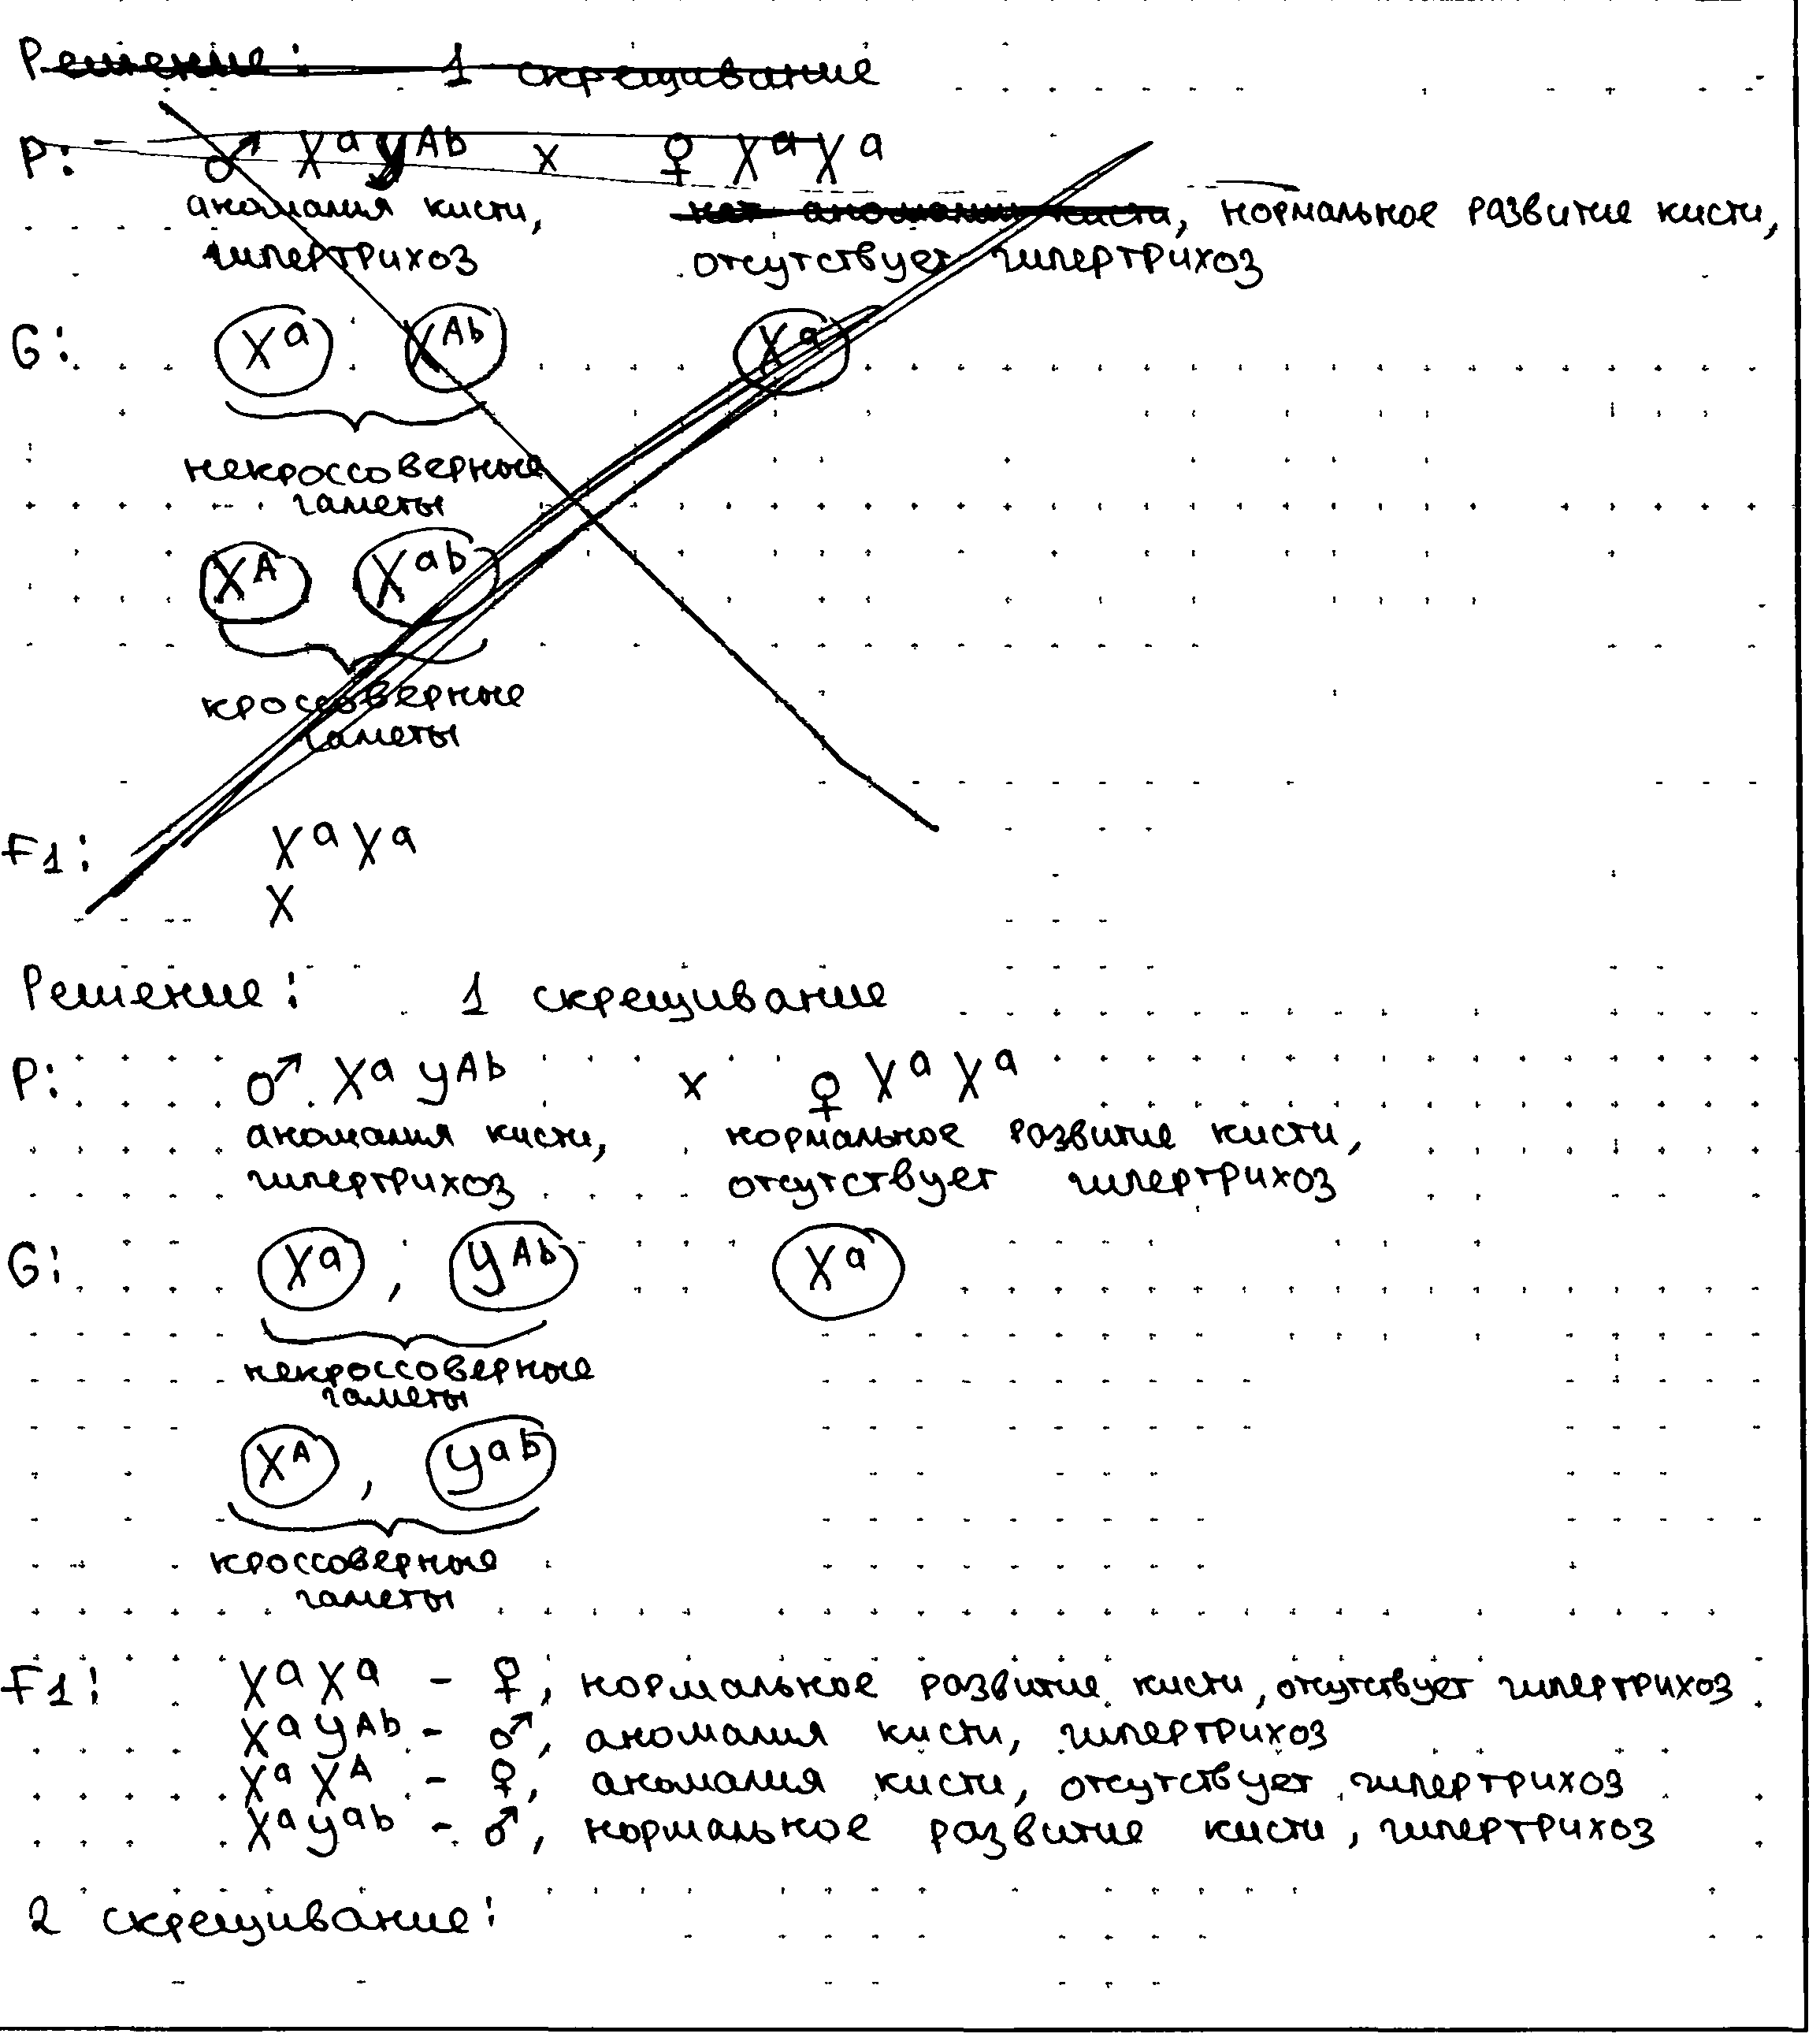 Решение: 1 скрещивание
P: ♂ XᵃYᴬᵇ x ♀ XᵃXᵃ
аномалия кисти, нет аномалии кисти, нормальное развитие кисти,
гипертрихоз отсутствует гипертрихоз
G: Xᵃ Xᴬᵇ Xᵃ
некроссоверные
гаметы
Xᴬ Xᵃᵇ
кроссоверные
гаметы
F1: XᵃXᵃ
X
Решение: 1 скрещивание
P: ♂ Xᵃ Yᴬᵇ x ♀ Xᵃ Xᵃ
аномалия кисти, нормальное развитие кисти,
гипертрихоз отсутствует гипертрихоз
G: Xᵃ, Yᴬᵇ Xᵃ
некроссоверные
гаметы
Xᴬ, Yᵃᵇ
кроссоверные
гаметы
F1: XᵃXᵃ - ♀, нормальное развитие кисти, отсутствует гипертрихоз
XᵃYᴬᵇ - ♂, аномалия кисти, гипертрихоз
XᵃXᴬ - ♀, аномалия кисти, отсутствует гипертрихоз
XᵃYᵃᵇ - ♂, нормальное развитие кисти, гипертрихоз
2 скрещивание: